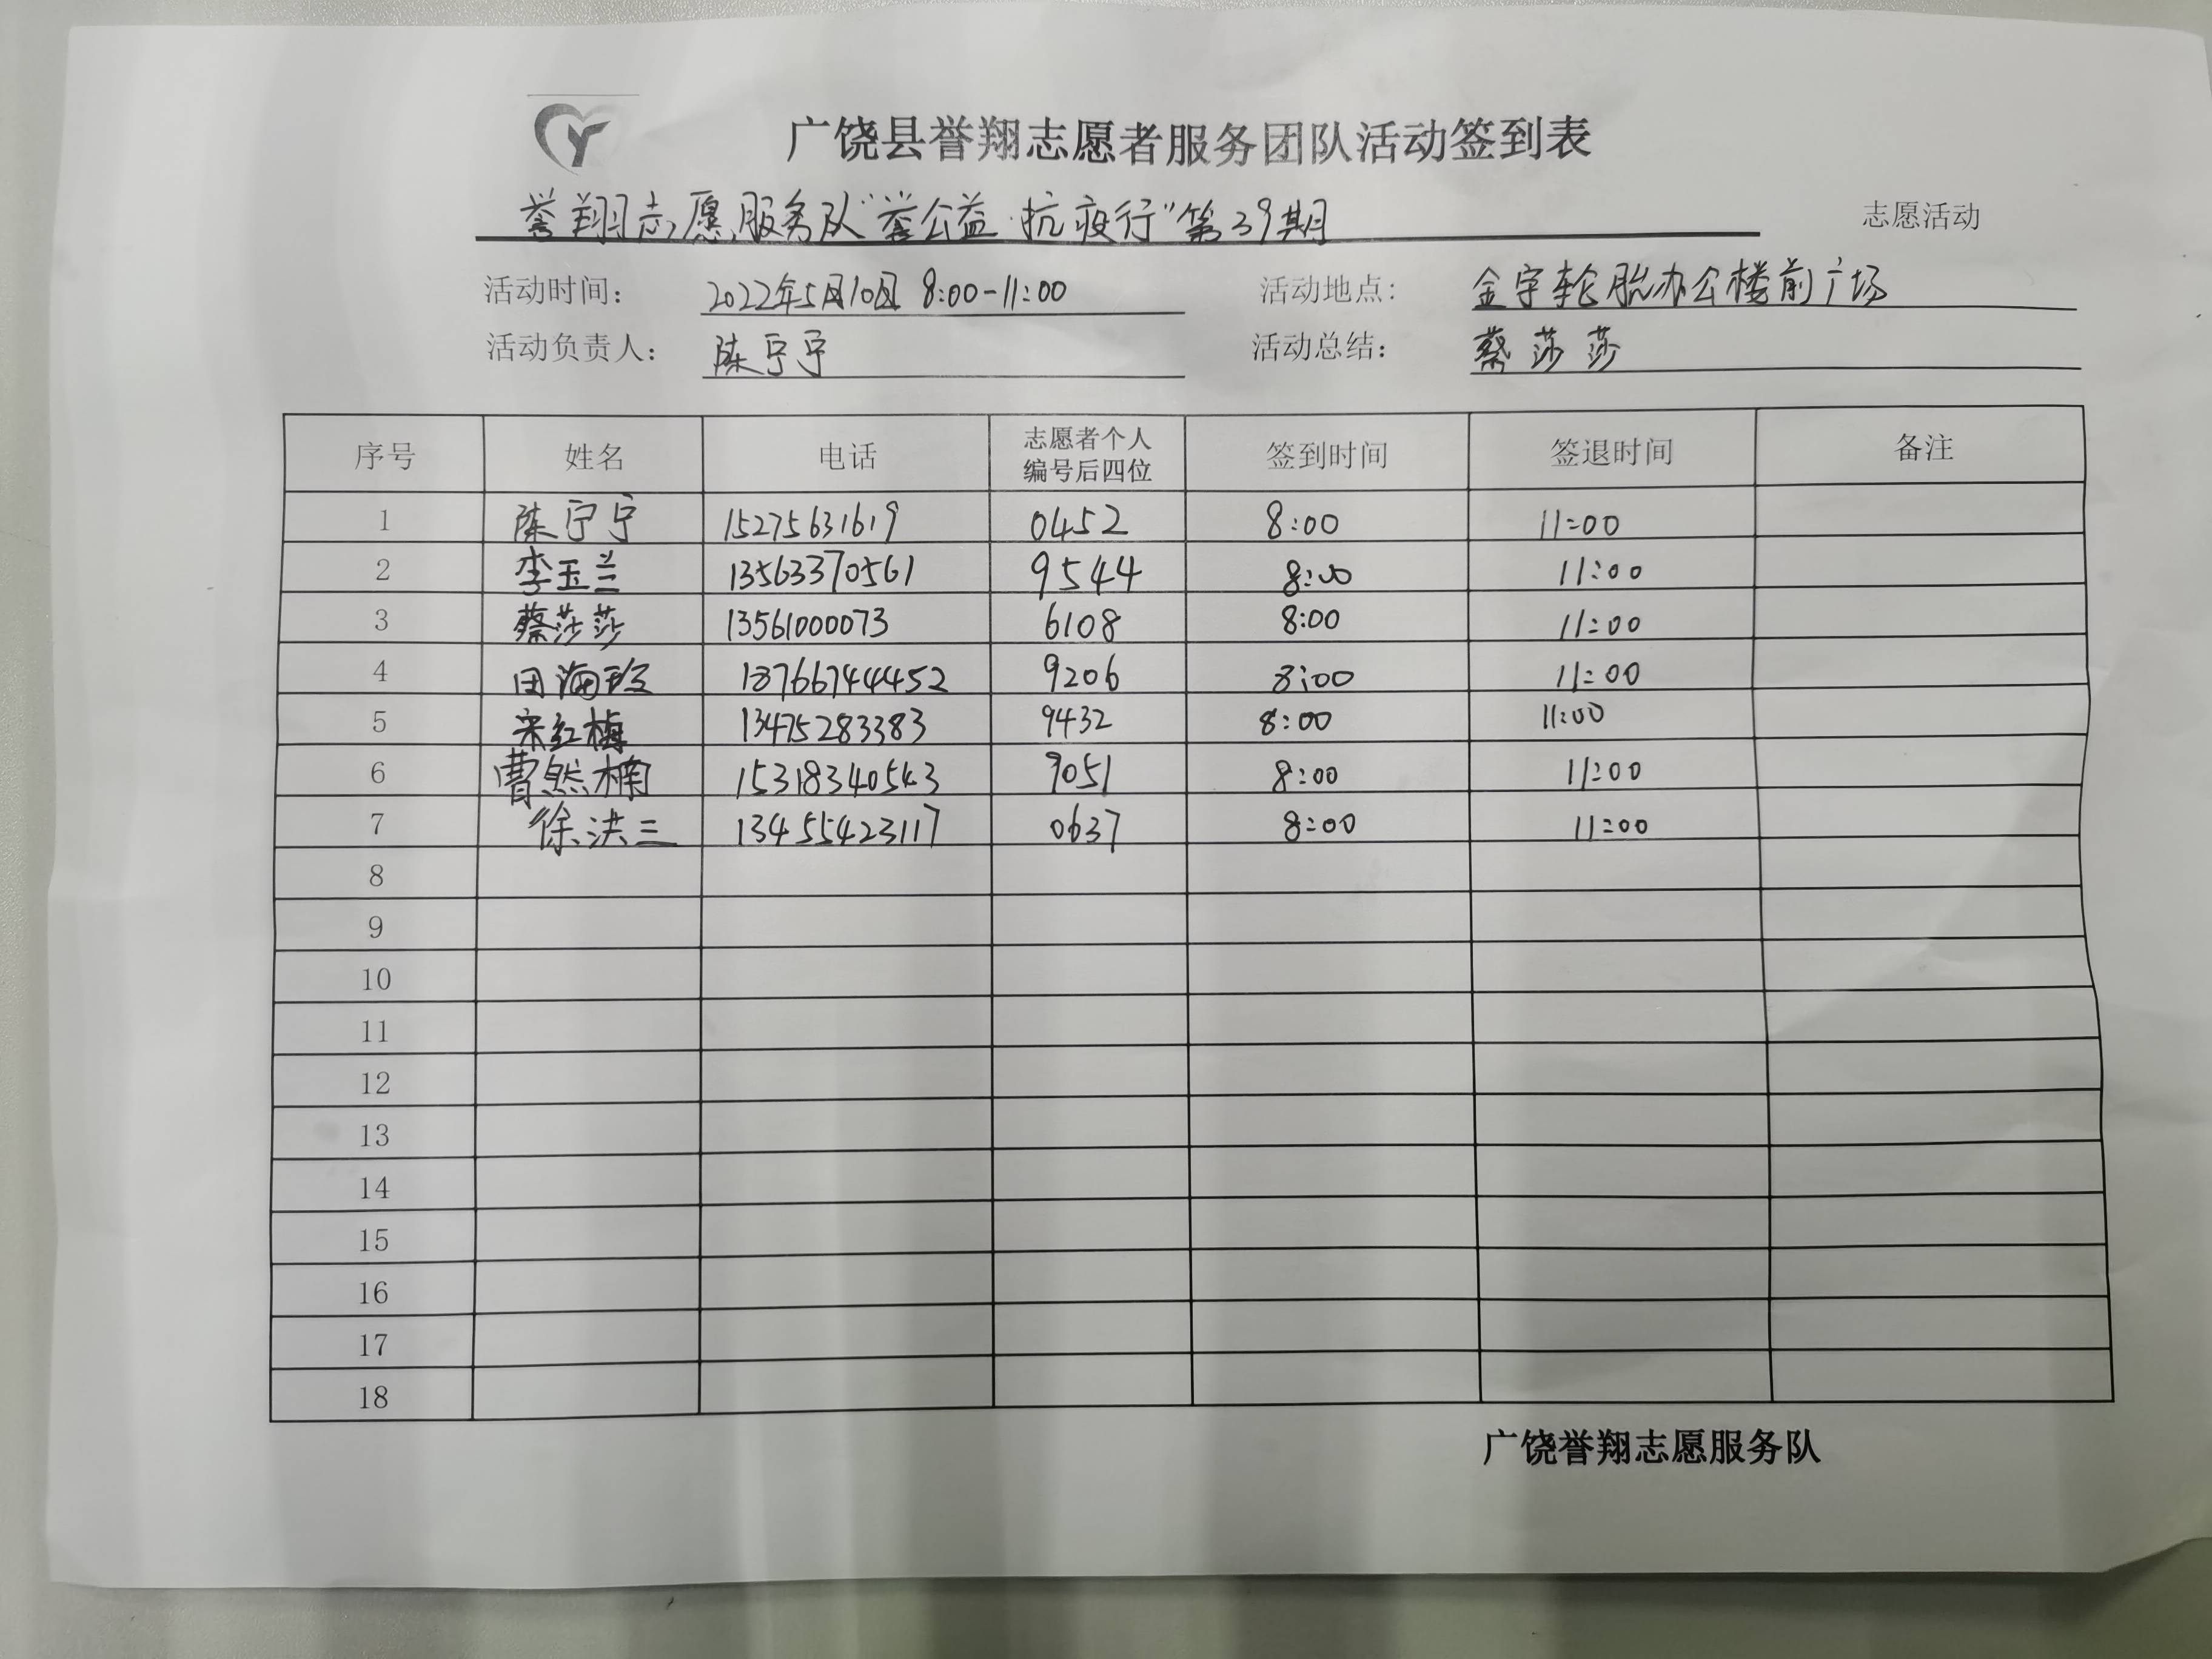 广饶县誉翔志愿者服务团队活动签到表
誉翔志愿服务队“誉公益·抗疫行”第39期 志愿活动
活动时间： 2022年5月10日 8:00-11:00 活动地点： 金宇轮胎办公楼前广场
活动负责人： 陈宁宁 活动总结： 蔡莎莎
序号 姓名 电话 志愿者个人编号后四位 签到时间 签退时间 备注
1 陈宁宁 15275631619 0452 8:00 11:00
2 李玉兰 13563370561 9544 8:00 11:00
3 蔡莎莎 13561000073 6108 8:00 11:00
4 田海珍 18766744452 9206 8:00 11:00
5 宋红梅 13475283383 9432 8:00 11:00
6 曹然楠 15318340543 9051 8:00 11:00
7 徐洪三 13455423117 0637 8:00 11:00
8
9
10
11
12
13
14
15
16
17
18
广饶誉翔志愿服务队